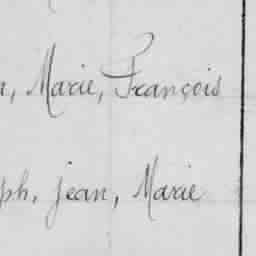 Marie, François
ph, jean, Marie